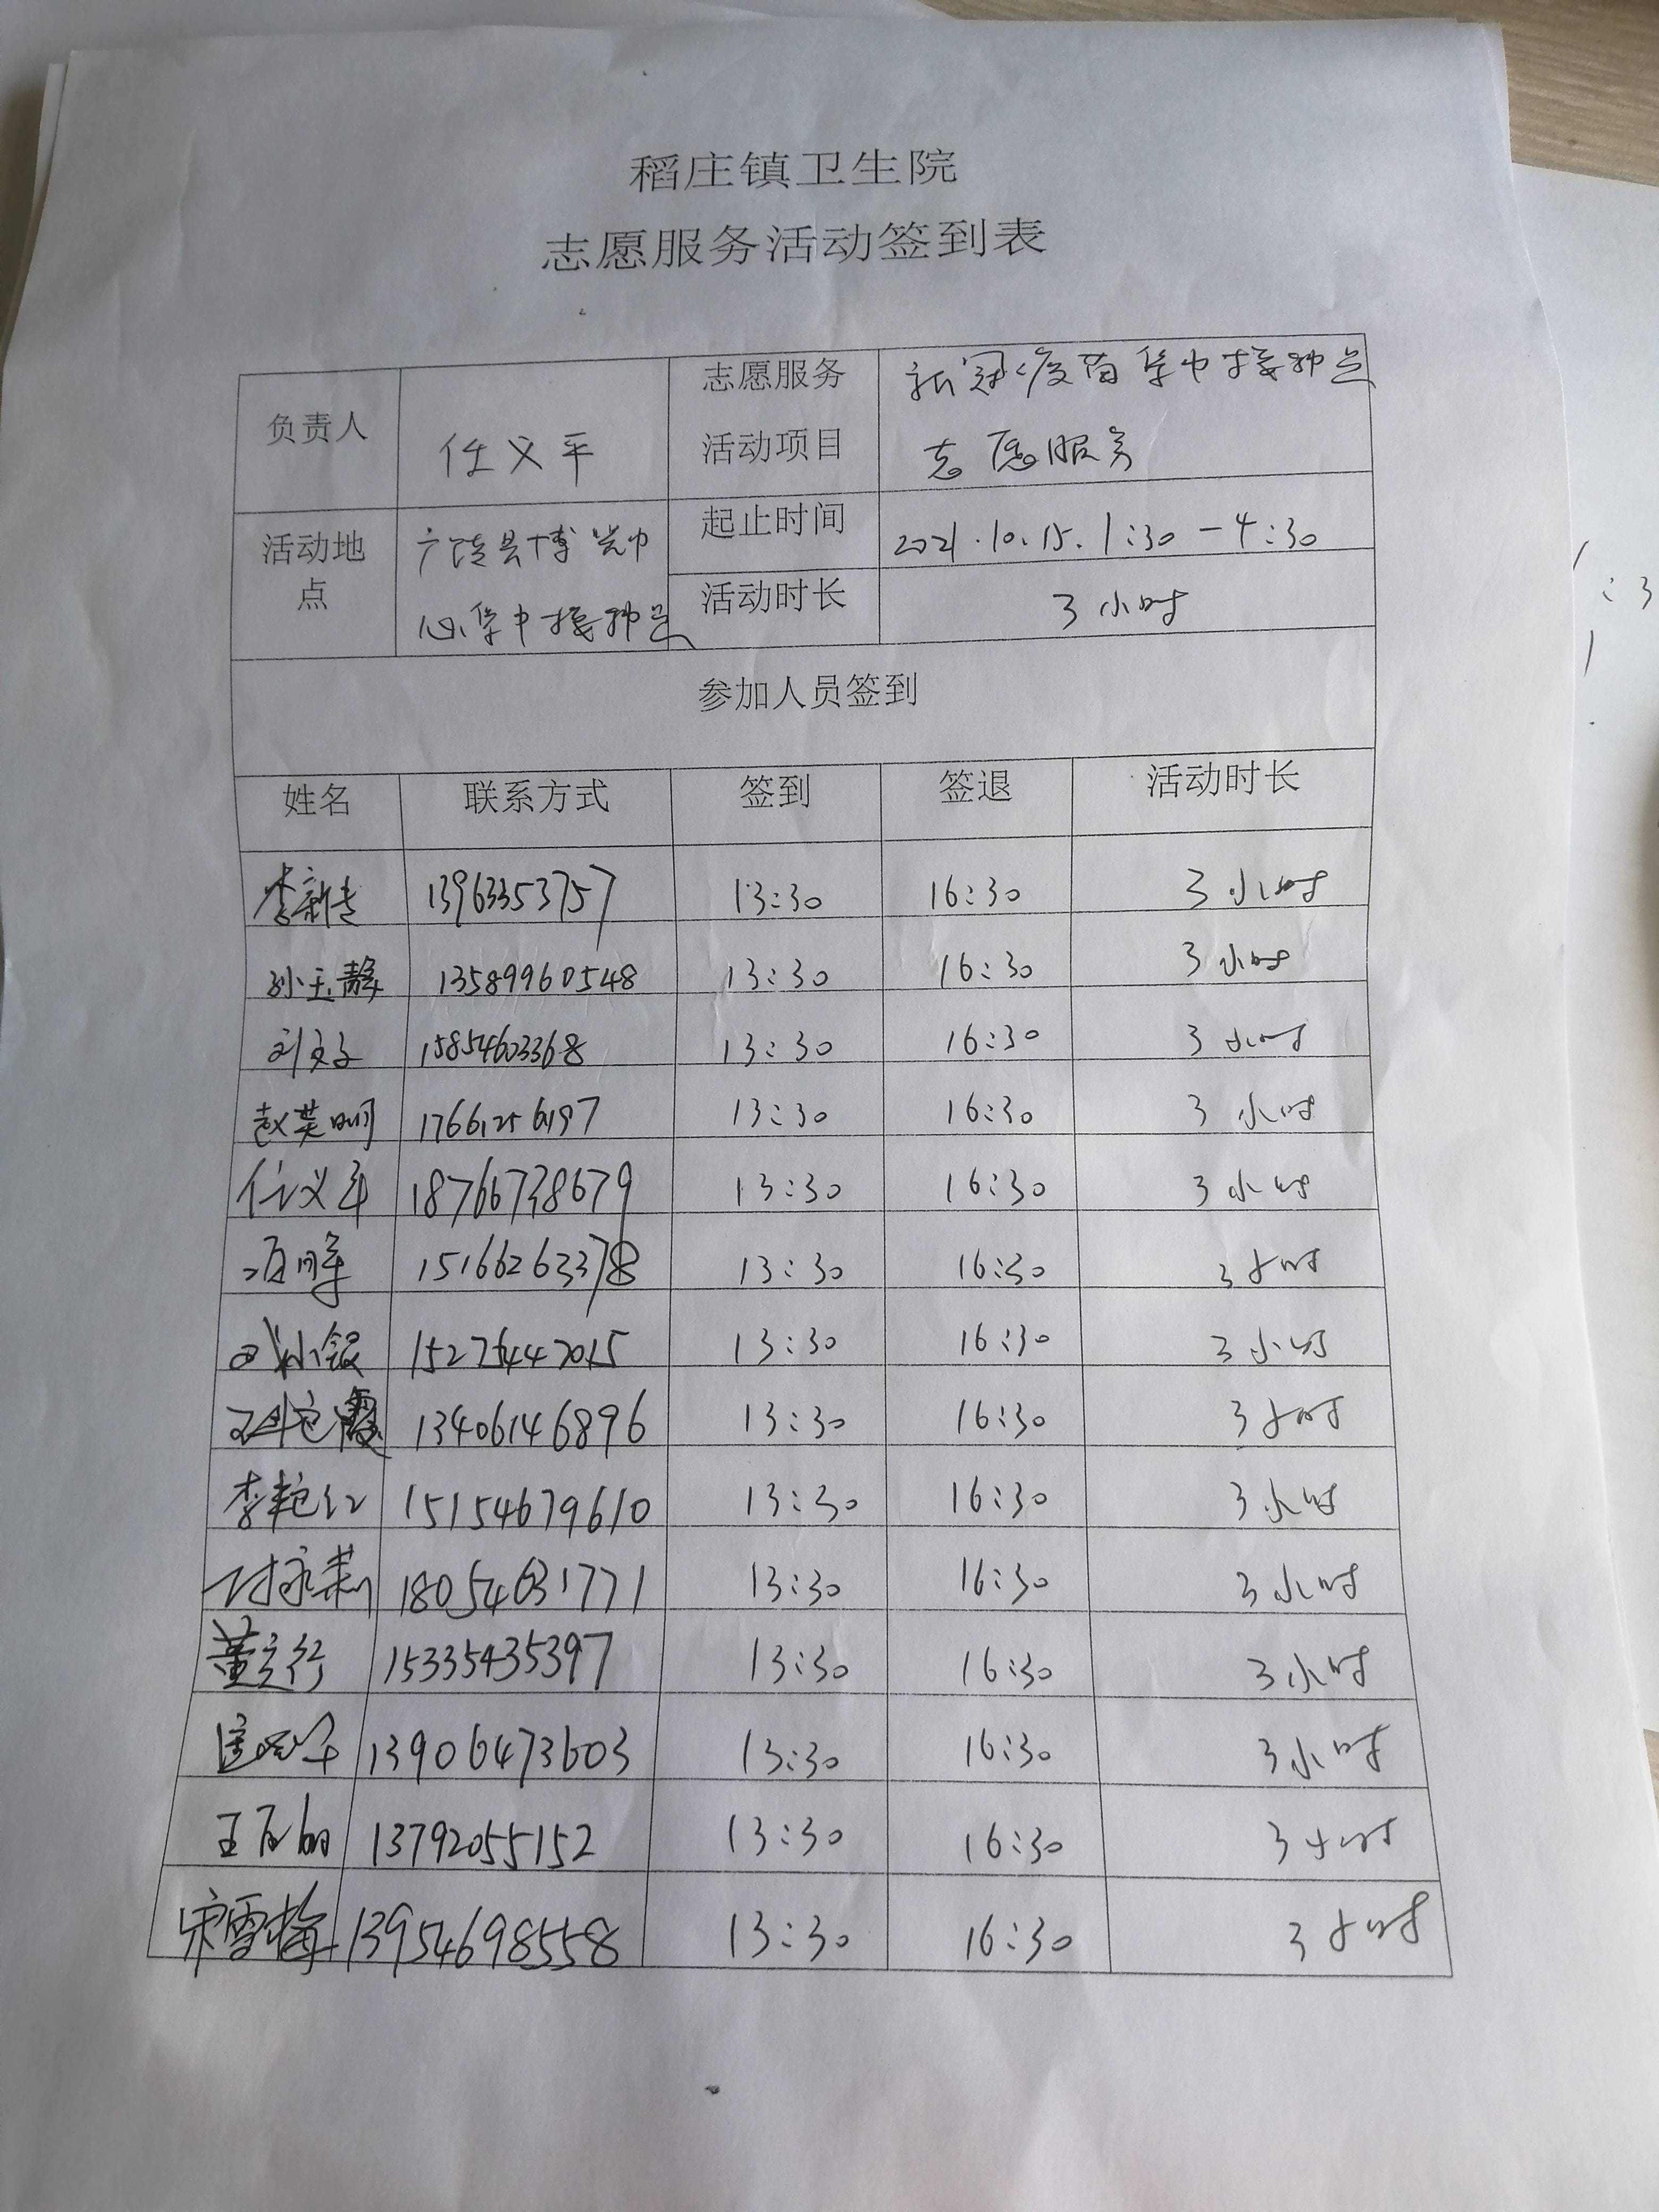 稻庄镇卫生院
志愿服务活动签到表
负责人 任义平 志愿服务活动项目 新冠疫苗集中接种点
志愿服务
活动地点 广饶县博览中
心集中接种点
起止时间 2021.10.15. 1:30-4:30
活动时长 3小时
参加人员签到
姓名 联系方式 签到 签退 活动时长
李新 13963353757 13:30 16:30 3小时
孙玉静 13589960548 13:30 16:30 3小时
刘文 15854603368 13:30 16:30 3小时
赵英明 17661256197 13:30 16:30 3小时
任义平 18766738679 13:30 16:30 3小时
15166263378 13:30 16:30 3小时
15275447015 13:30 16:30 3小时
霞 13406146896 13:30 16:30 3小时
李艳红 15154679610 13:30 16:30 3小时
18054631771 13:30 16:30 3小时
董立行 15335435397 13:30 16:30 3小时
13906473603 13:30 16:30 3小时
王 13792055152 13:30 16:30 3小时
宋雪梅 13954698558 13:30 16:30 3小时